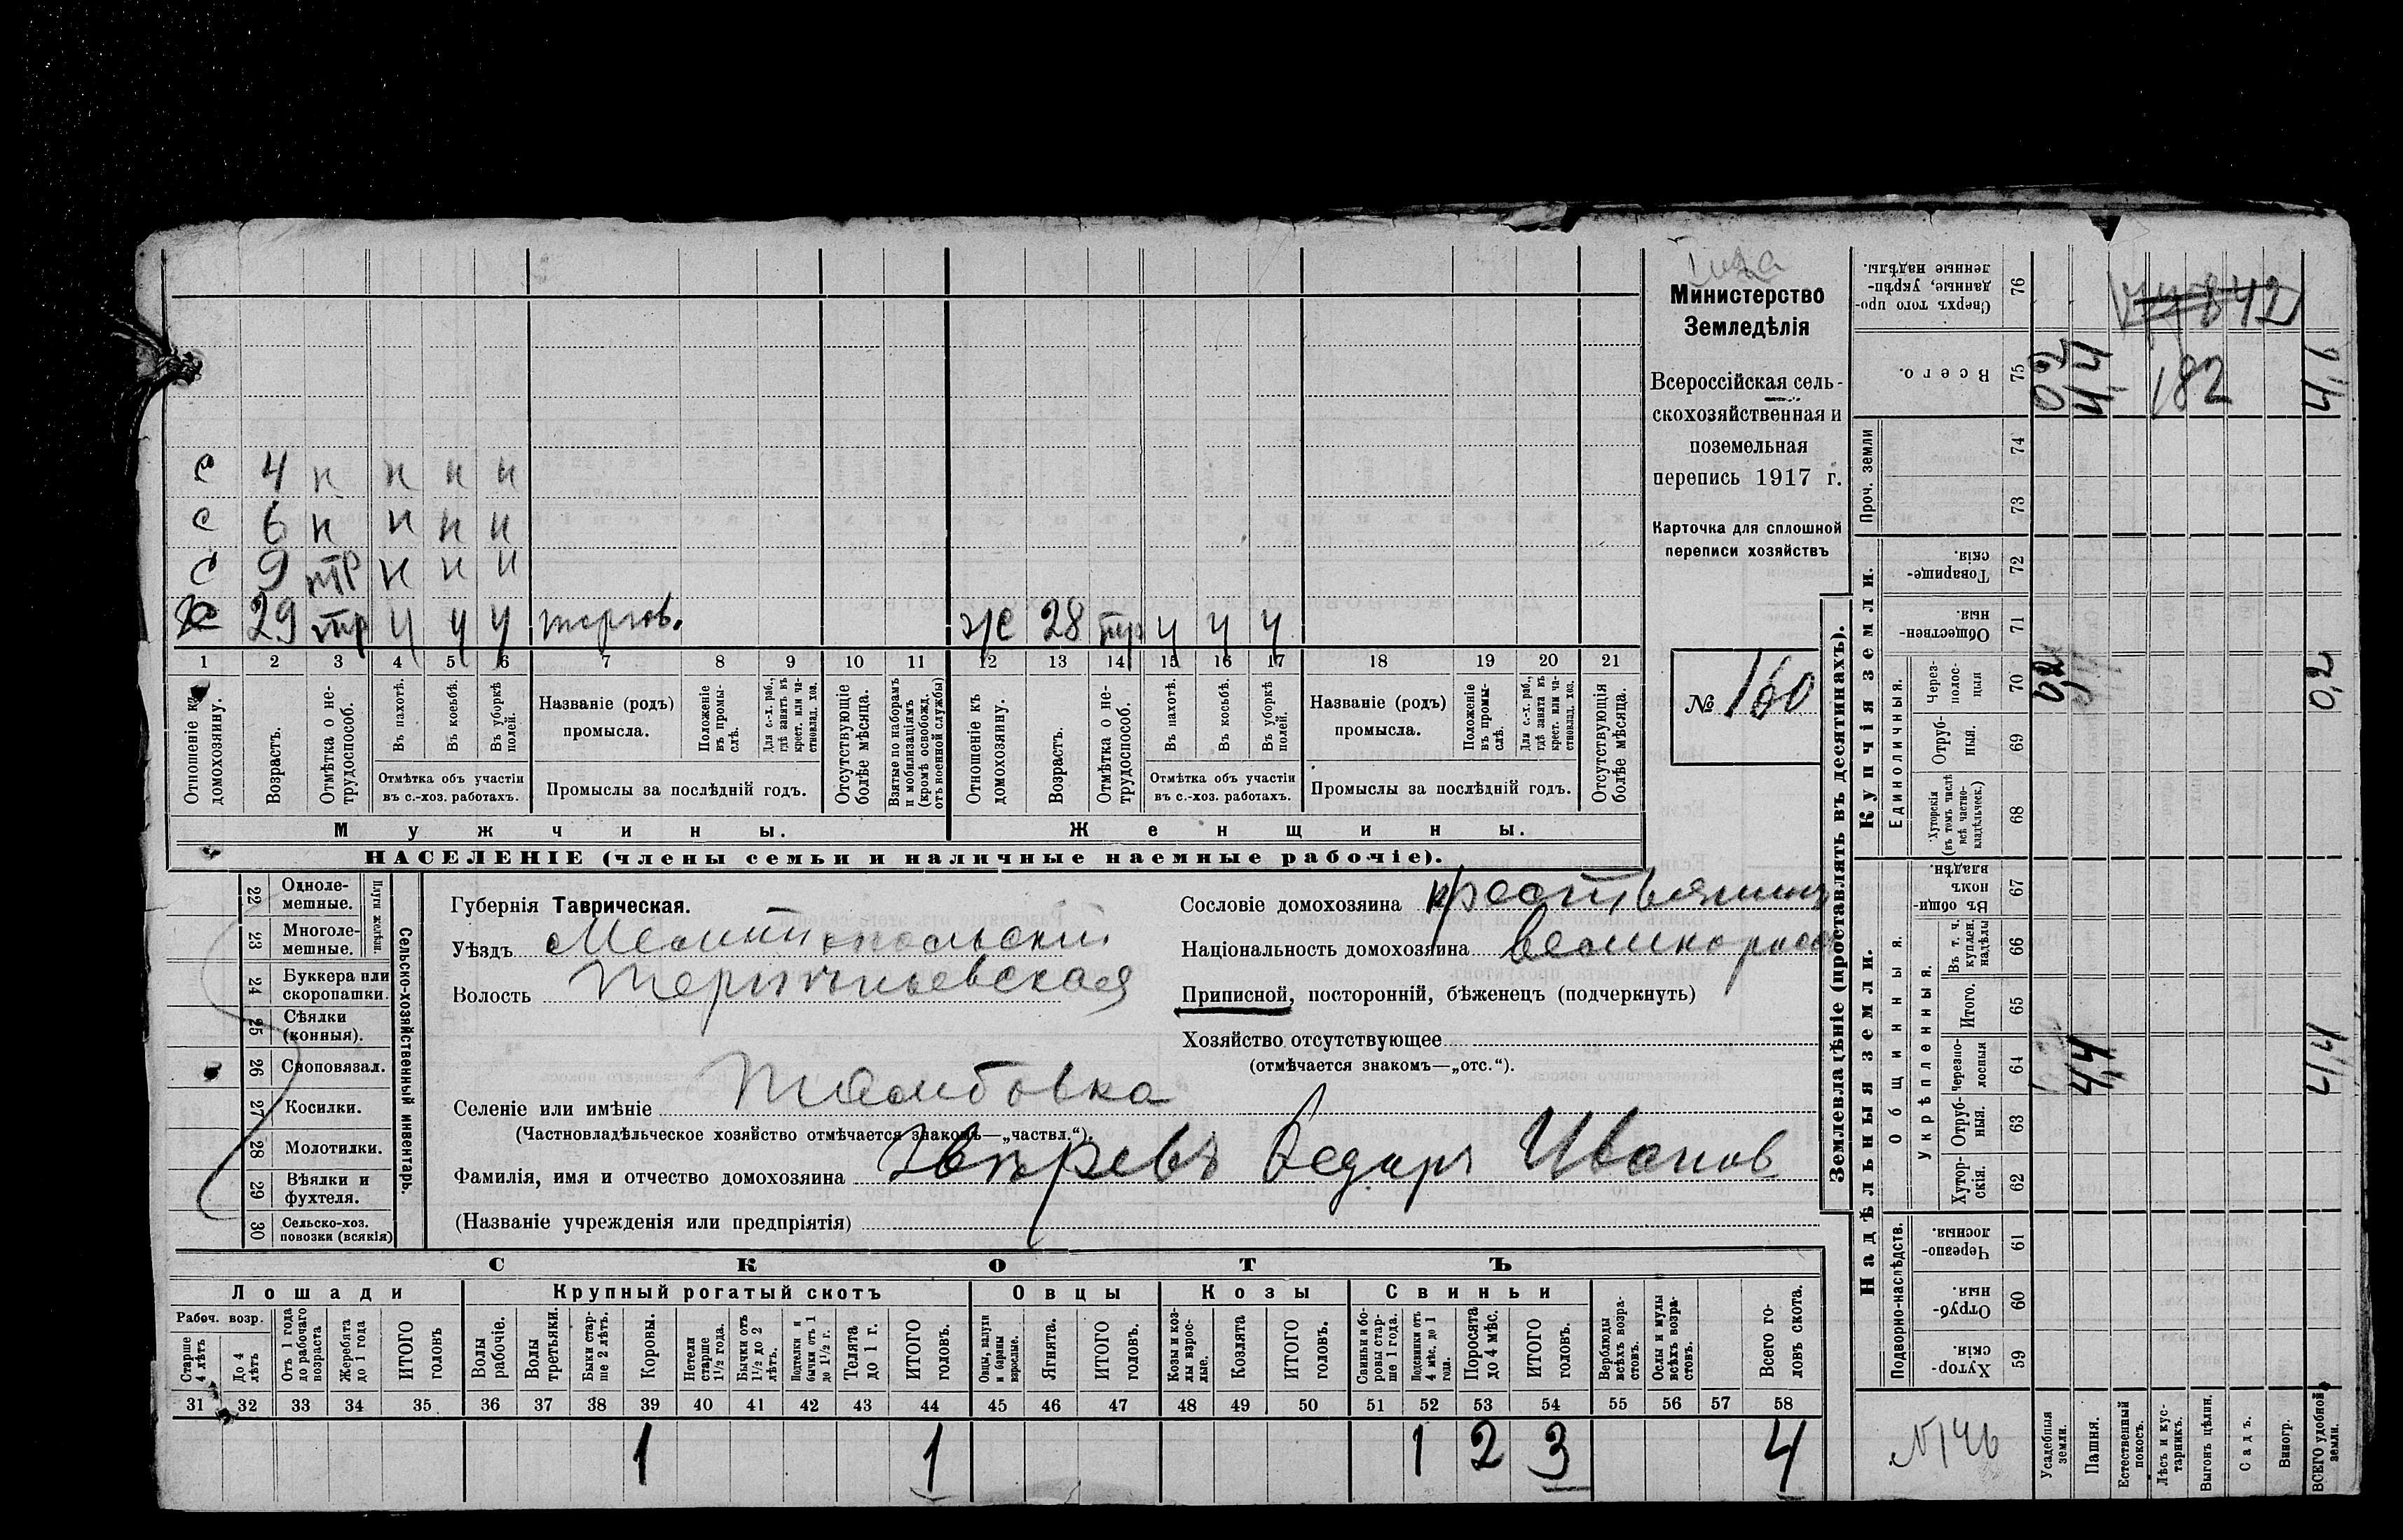 Министерство
Земледѣлія
Всероссійская сель-
скохозяйственная и
поземельная
перепись 1917 г.
Карточка для сплошной
переписи хозяйствъ
№ 160
с 4 н н н н
с 6 н н н н
с 9 тр н н н
х 29 тр ч ч ч торгов. ж 28 тр ч ч ч
1 2 3 4 5 6 7 8 9 10 11 12 13 14 15 16 17 18 19 20 21
Отношеніе къ домохозяину.
Возрастъ.
Отмѣтка о не-трудоспособ.
Въ пахотѣ.
Въ косьбѣ.
Въ уборкѣ полей.
Отмѣтка объ участіи въ с.-хоз. работахъ.
Названіе (родъ) промысла.
Положеніе въ промы-слѣ.
Для с.-х. раб., гдѣ занятъ въ крест. или ча-стновлад. хоз.
Промыслы за послѣдній годъ.
Отсутствующіе болѣе мѣсяца.
Взятые по наборамъ и мобилизаціямъ (кромѣ освобожд. отъ военной службы)
Отношеніе къ домохозяину.
Возрастъ.
Отмѣтка о не-трудоспособ.
Въ пахотѣ.
Въ косьбѣ.
Въ уборкѣ полей.
Отмѣтка объ участіи въ с.-хоз. работахъ.
Названіе (родъ) промысла.
Положеніе въ промы-слѣ.
Для с.-х. раб., гдѣ занята въ крест. или ча-стновлад. хоз.
Промыслы за послѣдній годъ.
Отсутствующія болѣе мѣсяца.
Мужчины. Женщины.
НАСЕЛЕНІЕ (члены семьи и наличные наемные рабочіе).
Сельско-хозяйственный инвентарь.
Плуги желѣзн.
22 Одноле-мешные.
23 Многоле-мешные.
24 Буккера или скоропашки.
25 Сѣялки (конныя).
26 Сноповязал.
27 Косилки.
28 Молотилки.
29 Вѣялки и фухтеля.
30 Сельско-хоз. повозки (всякія)
Губернія Таврическая.
Уѣздъ Мелитопольскій
Волость
Селеніе или имѣніе Тамбовка
(Частновладѣльческое хозяйство отмѣчается знакомъ—„частвл.“).
Фамилія, имя и отчество домохозяина Звѣревъ Федоръ Иванов
(Названіе учрежденія или предпріятія)
Сословіе домохозяина крестьянинъ
Національность домохозяина великоросс
Приписной, посторонній, бѣженецъ (подчеркнуть)
Хозяйство отсутствующее
(отмѣчается знакомъ—„отс.“).
СКОТЪ
Лошади Крупный рогатый скотъ Овцы Козы Свиньи
Рабоч. возр.
Старше 4 лѣтъ
До 4 лѣтъ
Отъ 1 года до рабочаго возраста
Жеребята до 1 года
ИТОГО головъ
Волы рабочіе.
Волы третьяки.
Быки стар-ше 2 лѣтъ.
Коровы.
Нетели старше 1½ года.
Бычки отъ 1½ до 2 лѣтъ.
Подтелки и бычки отъ 1 до 1½ г.
Телята до 1 г.
ИТОГО головъ.
Овцы, валухи и бараны взрослые.
Ягнята.
ИТОГО головъ.
Козы и коз-лы взрос-лые.
Козлята
ИТОГО головъ.
Свиньи и бо-ровы стар-ше 1 года.
Подсвинки отъ 4 мѣс. до 1 года.
Поросята до 4 мѣс.
ИТОГО головъ.
Верблюды всѣхъ возра-стовъ.
Ослы и мулы всѣхъ возра-стовъ.
Всего го-ловъ скота.
31 32 33 34 35 36 37 38 39 40 41 42 43 44 45 46 47 48 49 50 51 52 53 54 55 56 57 58
1 1 1 2 3 4
Землевладѣніе (проставлять въ десятинахъ).
Надѣльныя земли. Купчія земли. Проч. земли
Подворно-наслѣдств.
Общинныя.
Укрѣпленныя.
Единоличныя.
59 Хутор-скія.
60 Отруб-ныя.
61 Черезпо-лосныя.
62 Хутор-скія.
63 Отруб-ныя.
64 Черезпо-лосныя
65 Итого.
66 Въ т. ч. куплен. надѣлы
67 Въ общи-номъ владѣн.
68 Хуторскія (въ томъ числѣ всѣ частно-владѣльческ.)
69 Отруб-ныя.
70 Через-полос-ныя
71 Обществен-ныя.
72 Товарище-скія.
73
74
75 Всего.
76 Сверхъ того про-данные, укрѣп-ленные надѣлы.
Усадебныя земли.
Пашня.
Естественный покосъ.
Лѣсъ и кус-тарникъ.
Выгонъ цѣлин.
Садъ.
Виногр.
ВСЕГО удобной земли.
842
182
4,4
0,2
0,2
4,4
№ 146